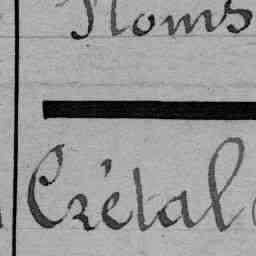 Noms
Crétal